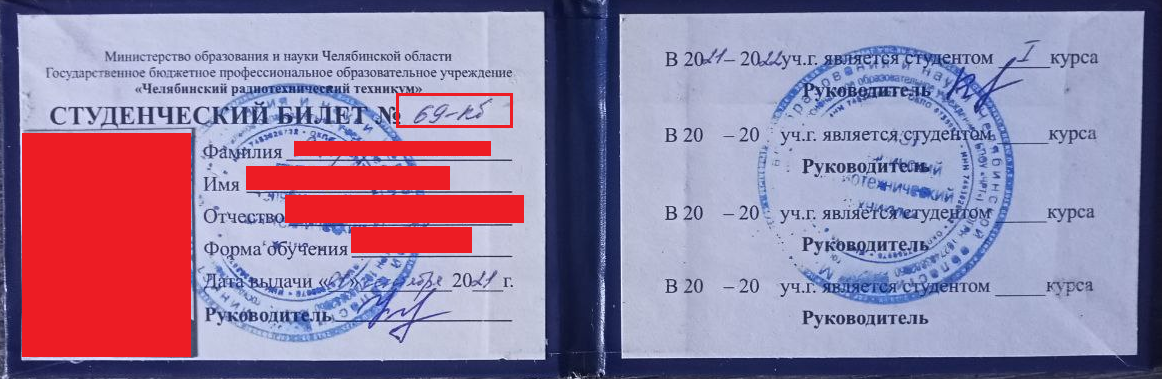 Министерство образования и науки Челябинской области
Государственное бюджетное профессиональное образовательное учреждение
«Челябинский радиотехнический техникум»
СТУДЕНЧЕСКИЙ БИЛЕТ № 69-Кб
Фамилия
Имя
Отчество
Форма обучения
Дата выдачи «01» сентября 2021 г.
Руководитель
В 2021 – 2022 уч.г. является студентом I курса
Руководитель
В 20 – 20 уч.г. является студентом курса
Руководитель
В 20 – 20 уч.г. является студентом курса
Руководитель
В 20 – 20 уч.г. является студентом курса
Руководитель